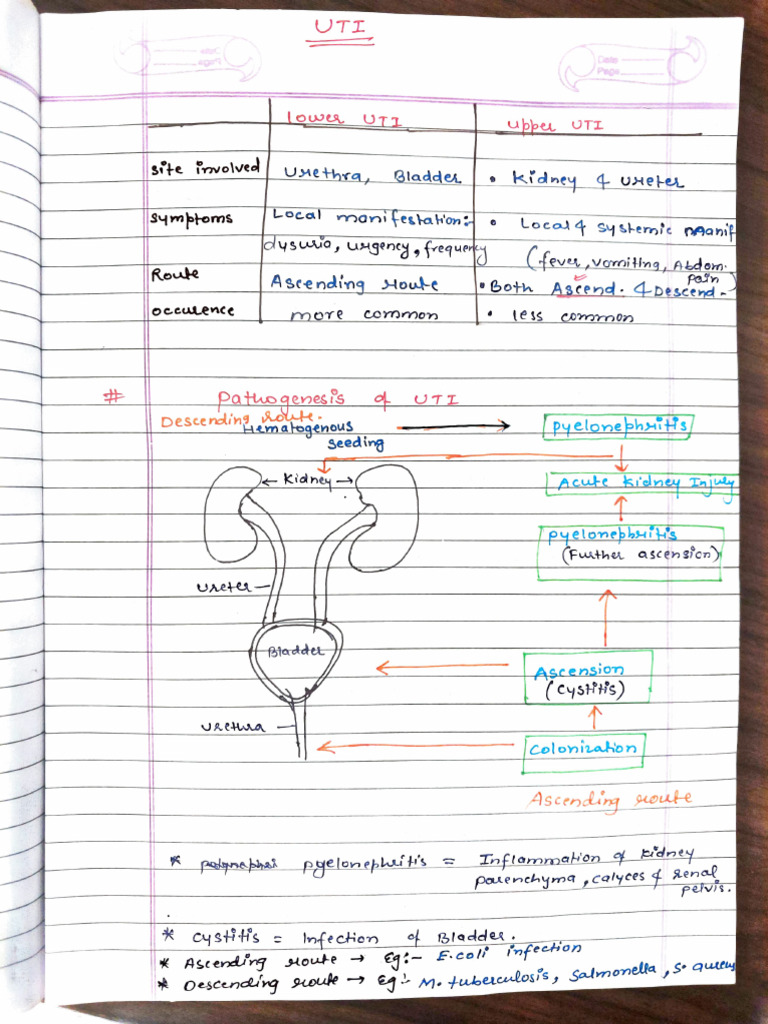 UTI
Date
Page
lower UTI upper UTI
site involved urethra, Bladder • Kidney & ureter
symptoms Local manifestation:- • Local & systemic manif
dysuria, urgency, frequency (fever, vomiting, Abdom. pain)
Route Ascending route • Both Ascend. & Descend-
occurence more common • less common
# Pathogenesis of UTI
Descending route.
Hematogenous seeding → pyelonephritis
← Kidney → Acute Kidney Injury
pyelonephritis
(Further ascension)
ureter
Bladder
Ascension
(cystitis)
urethra
colonization
Ascending route
* pyelonephritis = Inflammation of kidney
parenchyma, calyces & renal
pelvis.
* cystitis = Infection of Bladder.
* Ascending route → Eg:- E.coli infection
* Descending route → Eg:- M. tuberculosis, Salmonella, S. aureus